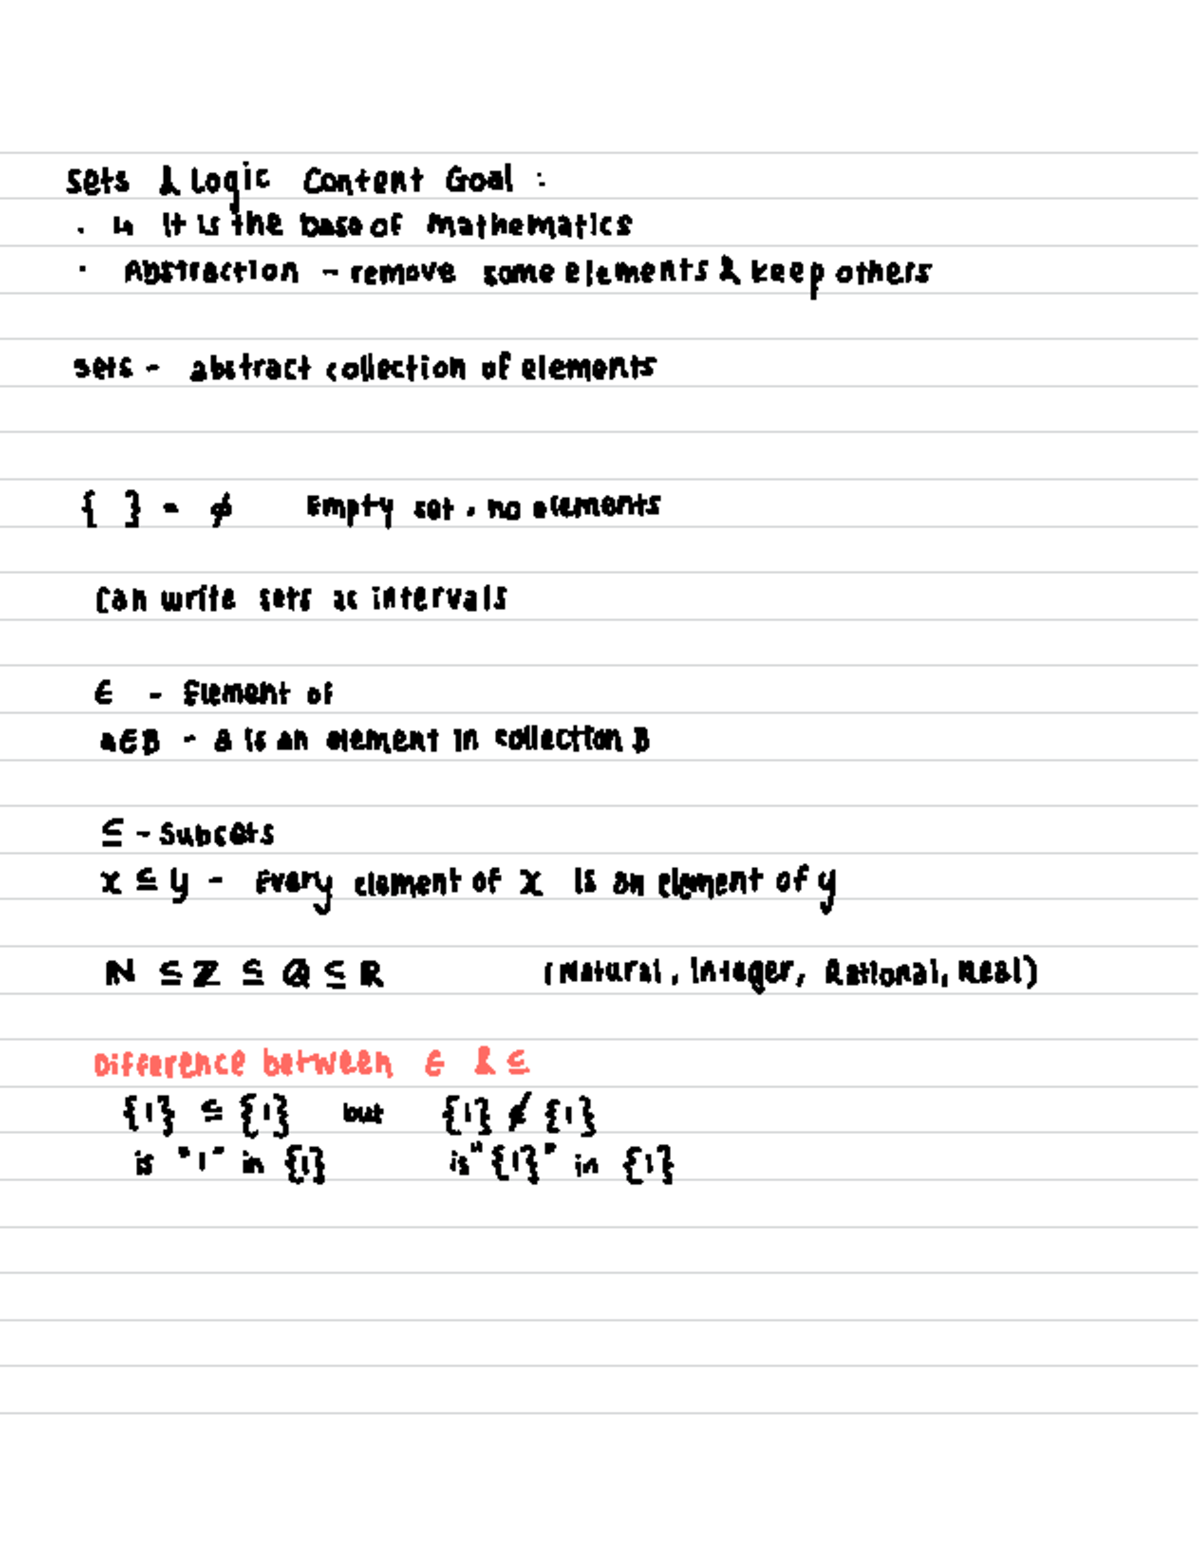 Sets & Logic Content Goal :
· ↳ It is the base of mathematics
· Abstraction - remove some elements & keep others
sets - abstract collection of elements
{ } = ∅ Empty set, no elements
Can write sets as intervals
∈ - Element of
a∈B - a is an element in collection B
⊆ - Subsets
x ⊆ y - Every element of x is an element of y
ℕ ⊆ ℤ ⊆ ℚ ⊆ ℝ (Natural, Integer, Rational, Real)
Difference between ∈ & ⊆
{1} ⊆ {1} but {1} ∉ {1}
is "1" in {1} is "{1}" in {1}